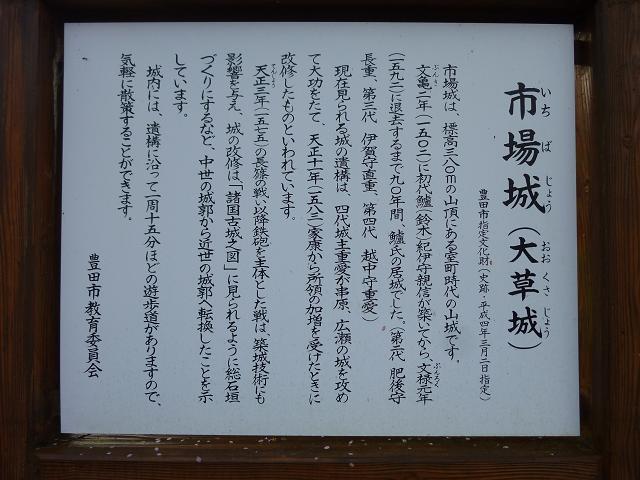 市場城（大草城）
いち ば じょう おお くさ じょう
豊田市指定文化財（史跡・平成四年三月二日指定）
市場城は、標高三八〇mの山頂にある室町時代の山城です。
文亀二年（一五〇二）に初代鱸（鈴木）紀伊守親信が築いてから、文禄元年
ぶんき ぶんろく
（一五九二）に退去するまで九〇年間、鱸氏の居城でした。（第二代 肥後守
長重、第三代 伊賀守直重、第四代 越中守重愛）
現在見られる城の遺構は、四代城主重愛が串原、広瀬の城を攻め
て大功をたて、天正十一年（一五八三）家康から所領の加増を受けたときに
改修したものといわれています。
天正三年（一五七五）の長篠の戦い以降鉄砲を主体とした戦は、築城技術にも
てんしょう
影響を与え、城の改修は「諸国古城之図」に見られるように総石垣
づくりにするなど、中世の城郭から近世の城郭へ転換したことを示
しています。
城内には、遺構に沿って一周十五分ほどの遊歩道がありますので、
気軽に散策することができます。
豊田市教育委員会